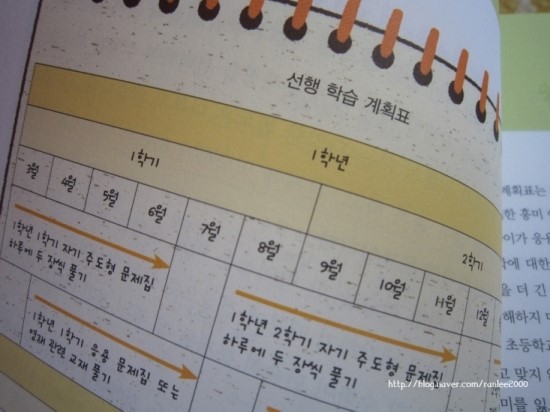 선행 학습 계획표
1학년
1학기
2학기
3월 4월 5월 6월 7월 8월 9월 10월 11월 12월
1학년 1학기 자기 주도형 문제집
하루에 두 장씩 풀기
1학년 2학기 자기 주도형 문제집
하루에 두 장씩 풀기
1학년 1학기 응용 문제집 또는
영재 관련 교재 풀기
계획표는
한 흥미
이가 응용
에 대한
을 더 긴
해하지
초등학교
고 맞지
미를 잃
http://blog.naver.com/ranlee2000